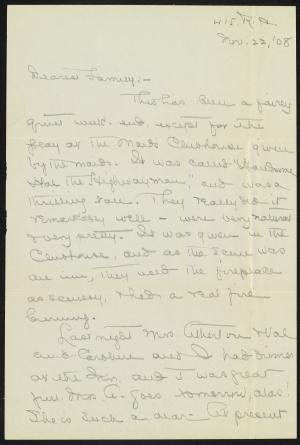 415. R.H.
Nov. 22, '08
Dearest Family:-
This has been a fairly
quiet week-end, except for the
play at the Maids Clubhouse given
by the maids. It was called "Handsome
Hal the Highwayman," and was a
thrilling tale. They really did it
remarkably well - were very natural
& very pretty. It was given in the
Clubhouse, and as the scene was
an inn, they used the fireplace
as scenery, & had a real fire
burning.
Last night Mrs. Atherton & Hal
and Caroline and I had dinner
at the Inn, and it was great
fun. Mrs. A. goes tomorrow, alas!
She is such a dear - At present